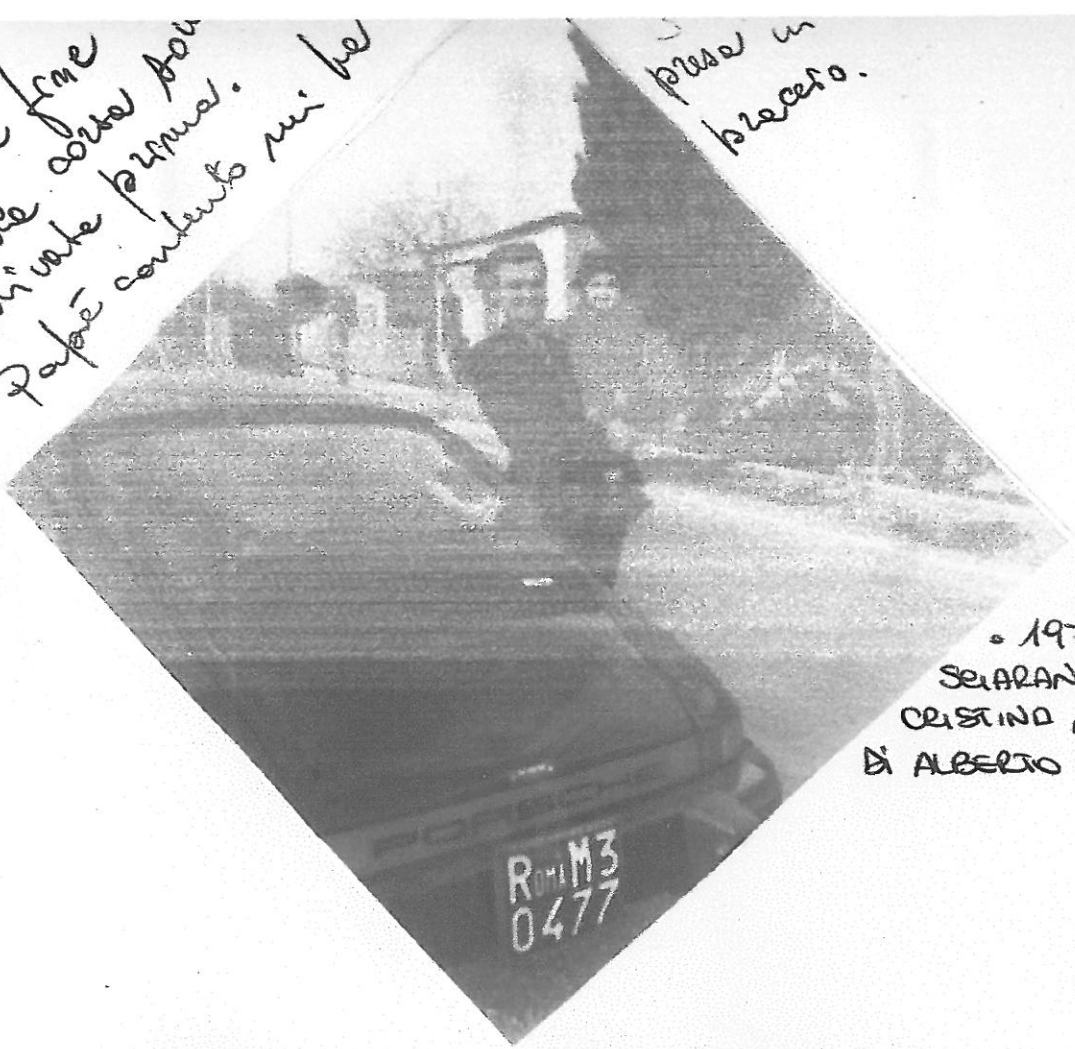 fine
corsa sou
arrivata prima.
Papà è contento mi ha
presa in
braccio.
• 197
SCIARAN
CRISTINA
DI ALBERTO
PORSCHE
ROMA M3
0477